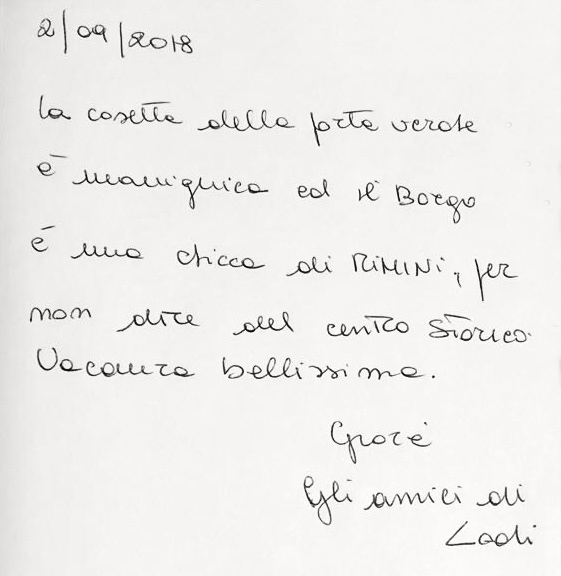 2/09/2018
La casetta della porta verde
è magnifica ed il Borgo
è una chicca di RIMINI, per
non dire del centro storico.
Vacanza bellissima.
Gli amici di
Lodi